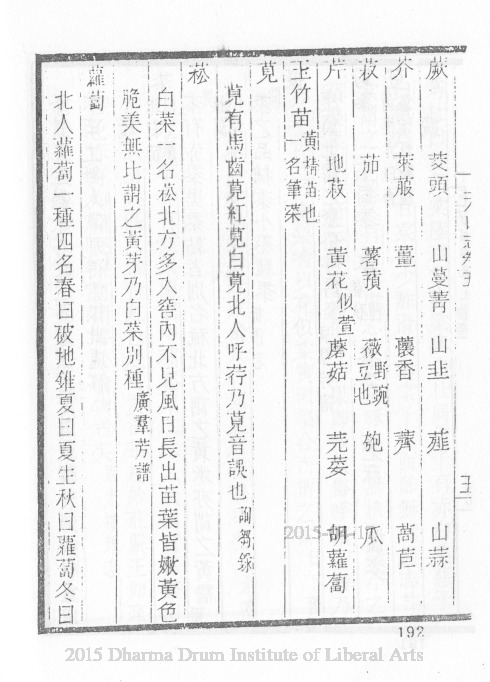 蕨 茭頭 山蔓菁 山韭 薤 山蒜
芥 萊菔 薑 蘹香 薺 萵苣
茄 薯蕷 薇野豌豆也 匏 瓜
芹 地菽 黃花似萱 蘑菇 芫荽 胡蘿蔔
玉竹苗黃精苗也一名筆菜
莧
莧有馬齒莧紅莧白莧北人呼荇乃莧音誤也
菘
白菜一名菘北方多入窖內不見風日長出苗葉皆嫩黃色
脆美無比謂之黃芽乃白菜別種廣羣芳譜
蘿蔔
北人蘿蔔一種四名春曰破地錐夏曰夏生秋曰蘿蔔冬曰
五
192
2015 Dharma Drum Institute of Liberal Arts